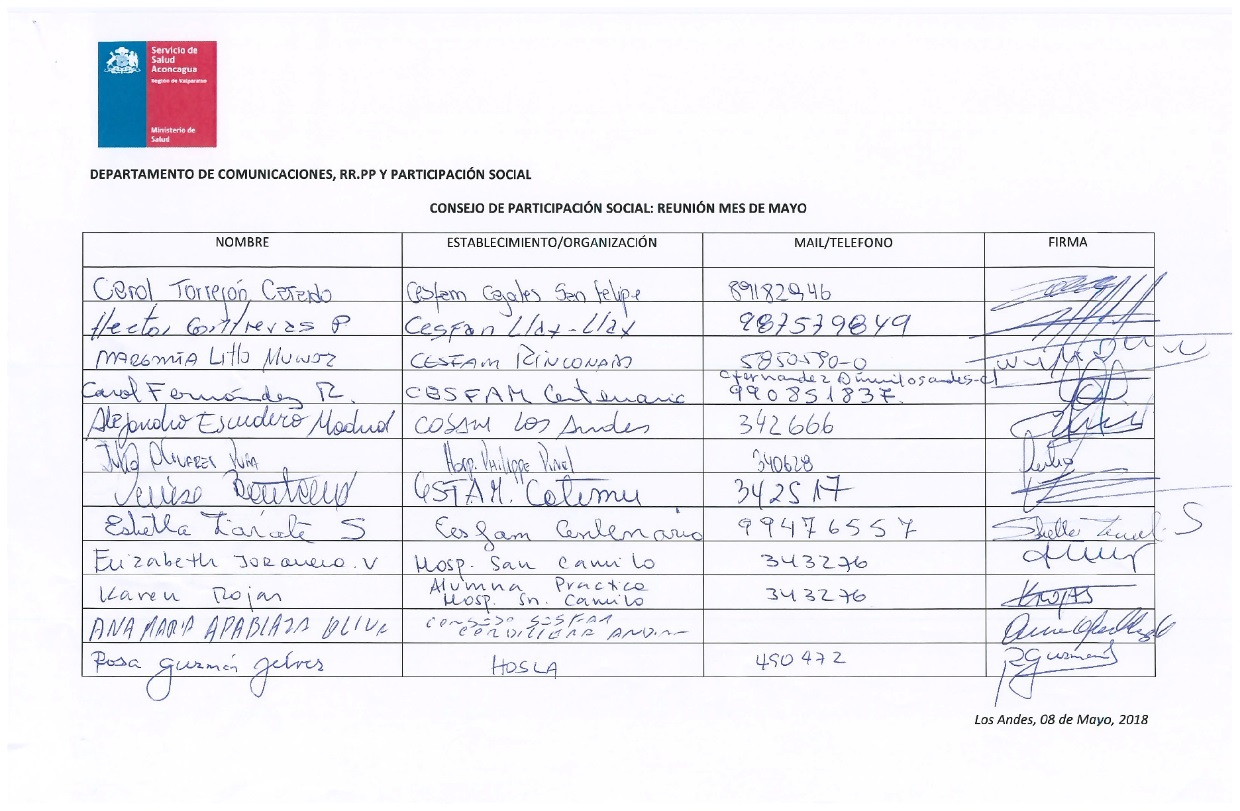 Servicio de
Salud
Aconcagua
Región de Valparaíso
Ministerio de
Salud
DEPARTAMENTO DE COMUNICACIONES, RR.PP Y PARTICIPACIÓN SOCIAL
CONSEJO DE PARTICIPACIÓN SOCIAL: REUNIÓN MES DE MAYO
NOMBRE ESTABLECIMIENTO/ORGANIZACIÓN MAIL/TELEFONO FIRMA
Carol Torrejón Cesfam San Felipe 89182946
Hector Contreras P Cesfan Llay-Llay 987579849
Litto Munoz CESFAM RINCONADA 5850590-0
Carol Fernández R. CESFAM Centenario cfernandez@munilosandes.cl
990851837.
Alejandro Escudero Madrid COSAM Los Andes 342666
OLIVARES Hosp. Philippe Pinel 340628
CESFAM. Catemu 342517
Estella Zárate S Cesfam Centenario 99476557
Elizabeth V Hosp. San Camilo 343276
Karen Rojas Alumna Practica
Hosp. Sn. Camilo 343276 KRojas
ANA MARIA APABLAZA OLIVA
Rosa Guzmán HOSLA 490472 RGuzmán
Los Andes, 08 de Mayo, 2018